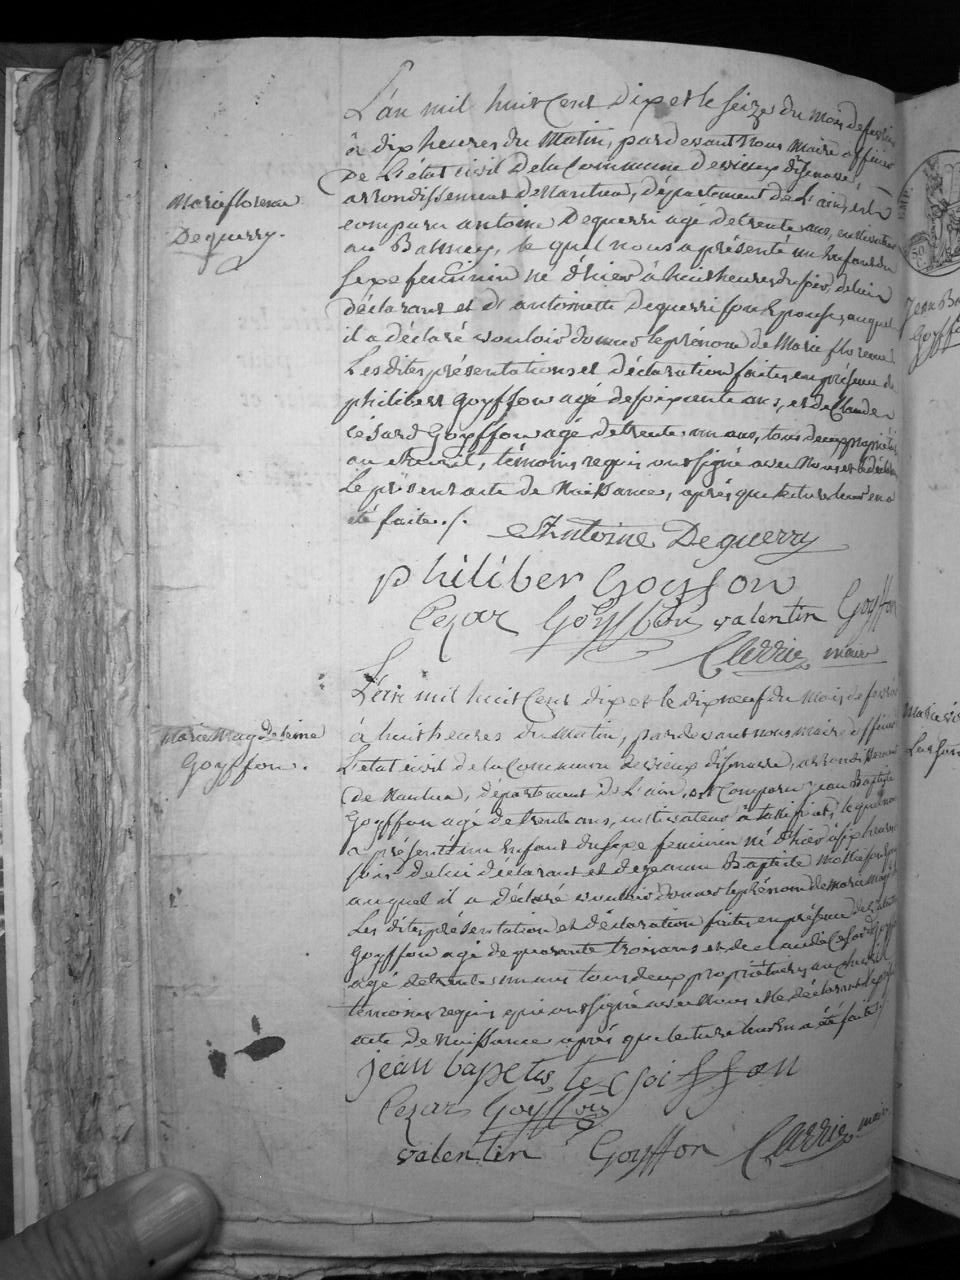 Marie florence
Dequerry.
L'an mil huit Cent Dix et le seize du mois de fevrier
à dix heures du Matin, pardevant Nous Maire officier
De L'état Civil De la Commune De vieux d'isenave,
arrondissement de Nantua, département de L'ain, est
comparu antoine Dequerri agé de trente ans, cultivateur
au Balmey, le quel nous a présenté un Enfant du
sexe feminin né d'hier à huit heures du soir, de lui
déclarant et de antoinette dequerri son Epouse, auquel
il a déclaré vouloir donner le prénom de Marie florence
Les dites présentations et déclaration faites en présence de
philibert goyffon agé de soixante ans, et de Claude
césard Goyffon agé de trente un ans, tous deux propriétaires
au, témoins requis ont signé avec Nous et le déclarant
Le présent acte de Naissance, après que lecture leur en a
été faite ./.
Antoine Dequerry
philiber Goyffon
Cezar Goyffon valentin Goyffon
Clerrie maire
Marie Magdeleine
Goyffon.
L'an mil huit Cent dix et le dix neuf du Mois de fevrier
à huit heures du Matin, pardevant nous maire officier
L'etat civil de la Commune de vieux d'isenave, arrondissement
De Nantua, département de L'ain, est Comparu jean Baptiste
Goyffon agé de trente ans, cultivateur à, le quel nous
a présenté un Enfant du sexe feminin né d'hier à six heures
soir de lui déclarant et de jeanne Baptiste son
auquel il a déclaré vouloir donner le prénom de Marie Magdeleine
Les dites présentation et déclaration faites en présence de valentin
Goyffon agé de quarante trois ans et de claude Cesard Goyffon
agé de trente un ans tous deux propriétaires au
témoins requis qui ont signé avec Nous et le déclarant
acte de Naissance après que lecture leur en a été faite
jean bapetis te goiffon
Cezar Goyffon
valentin Goyffon Clerrie maire